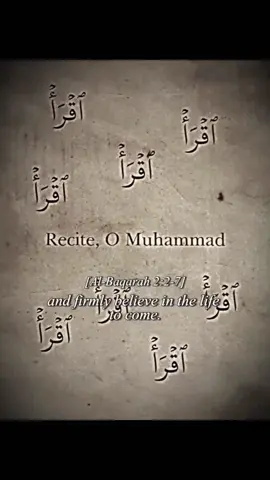 ٱقْرَأْ
ٱقْرَأْ
ٱقْرَأْ
ٱقْرَأْ
Recite, O Muhammad
[Al-Baqarah 2:2-7]
and firmly believe in the life
to come.
ٱقْرَأْ
ٱقْرَأْ
ٱقْرَأْ
ٱقْرَأْ